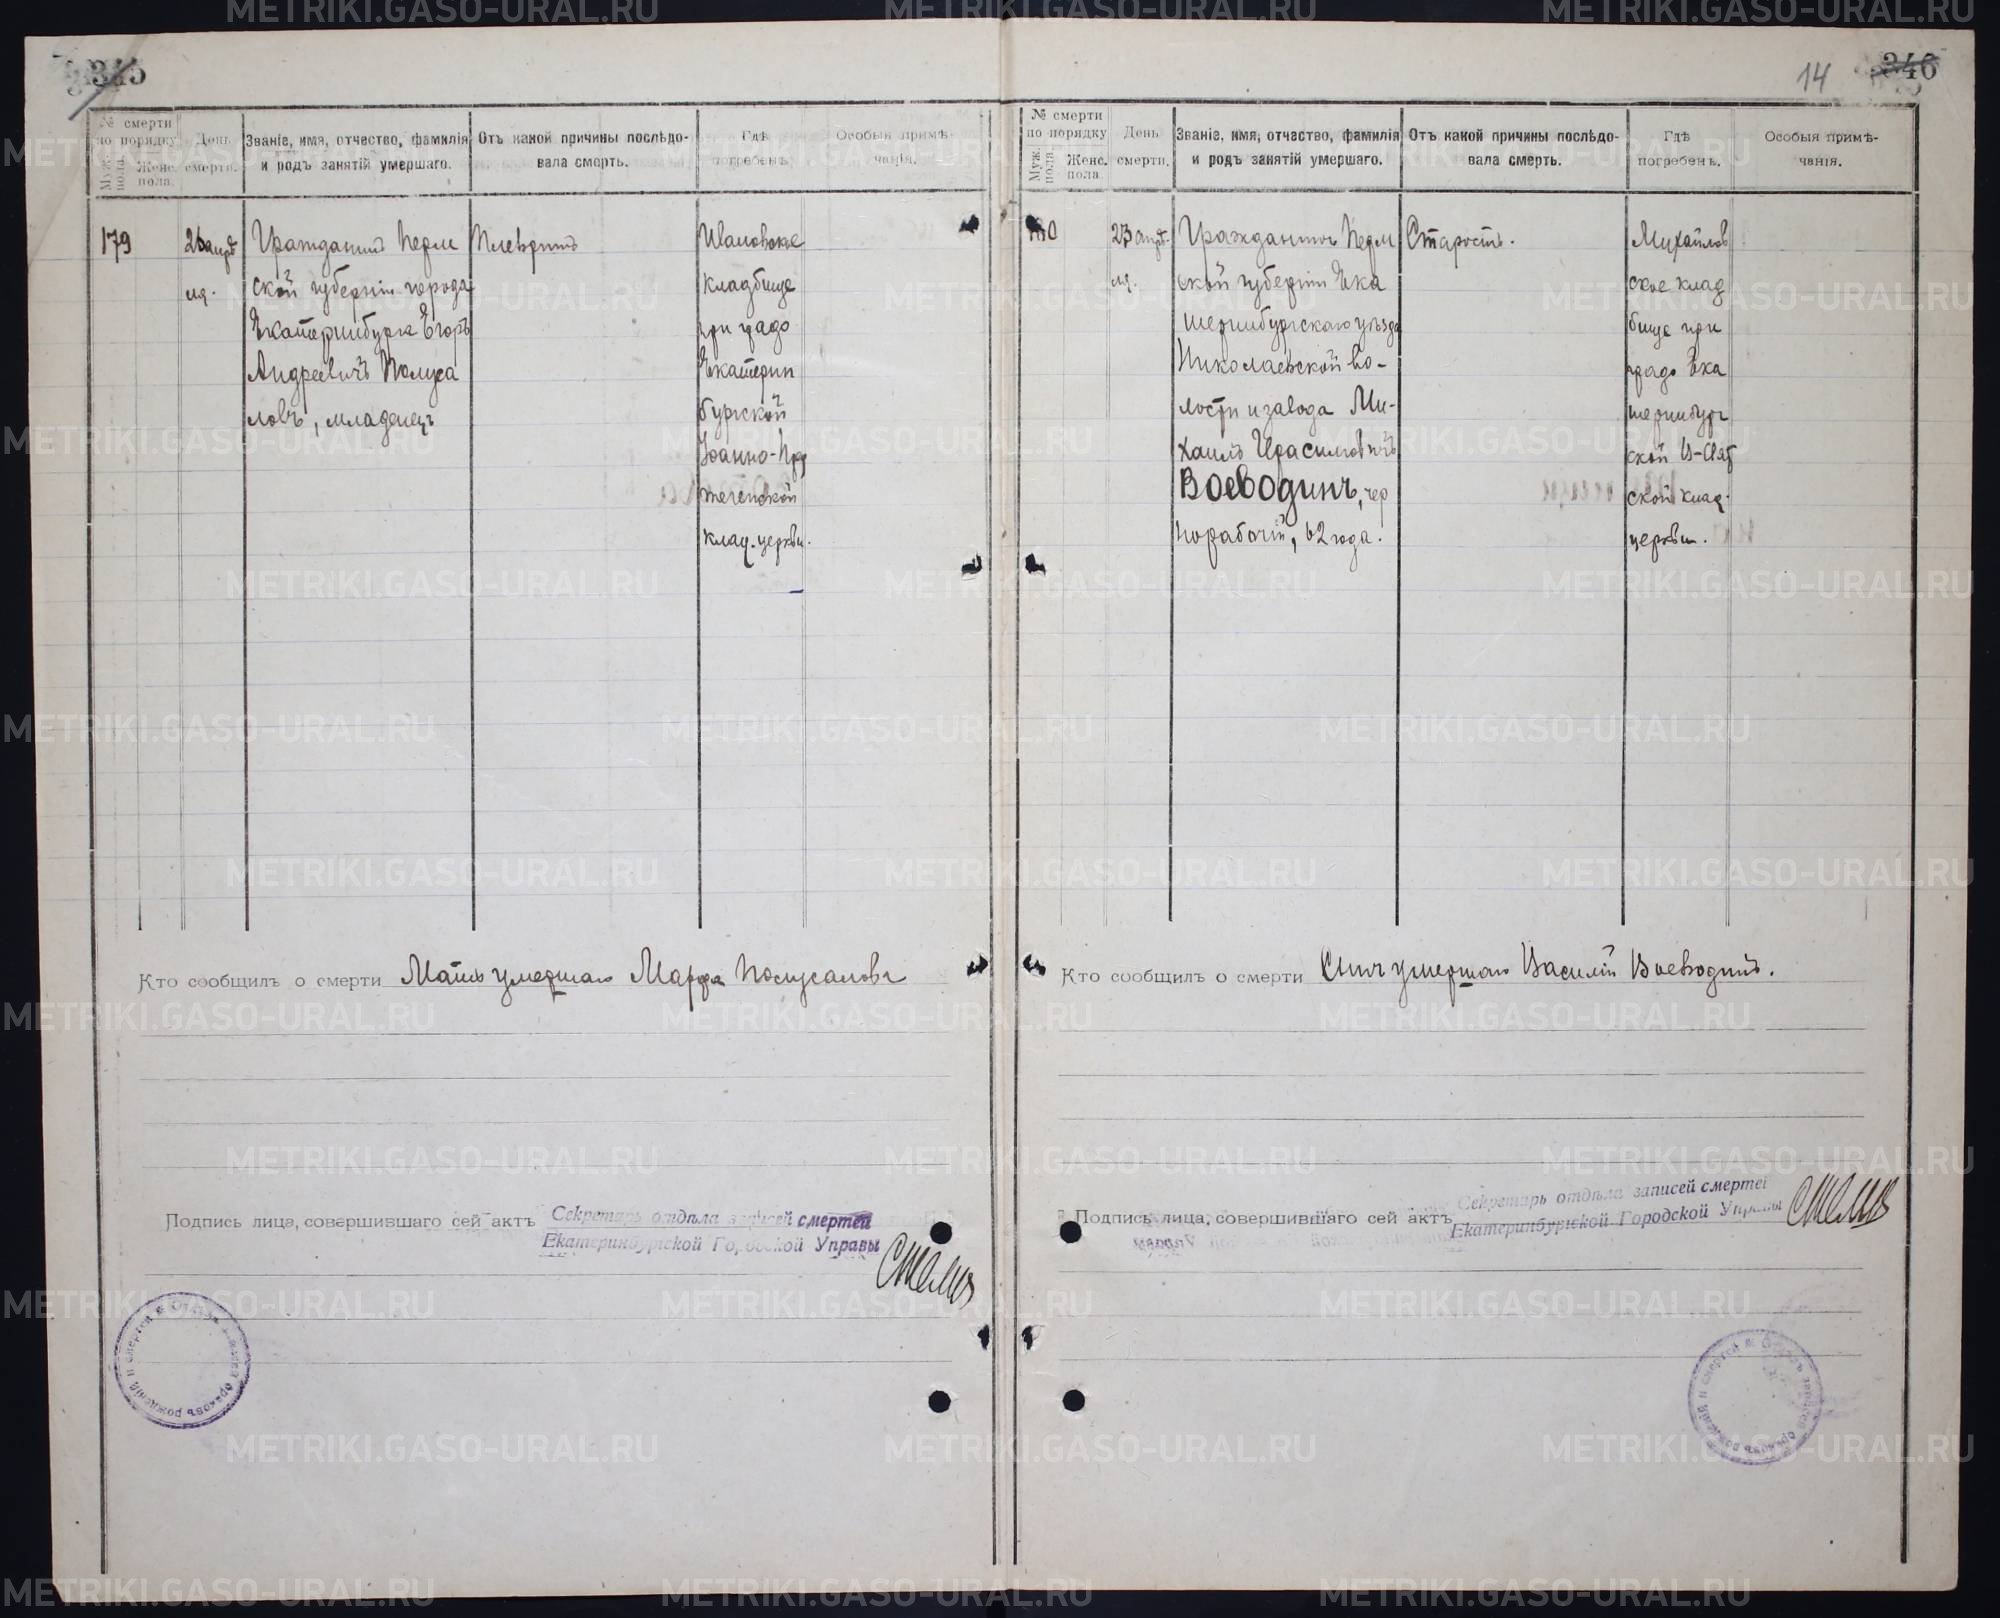 345
№ смерти
по порядку
Муж. пола.
Женс. пола.
День
смерти.
Званіе, имя, отчество, фамилія
и родъ занятій умершаго.
Отъ какой причины послѣдо-
вала смерть.
Гдѣ
погребенъ.
Особыя примѣ-
чанія.
179
апрѣ
ля.
Гражданинъ Перм
ской губерніи города
Екатеринбурга Егоръ
Андреевичъ Полуса
ловъ, младенецъ
Плевритъ
Ивановское
кладбище
при градо
Екатерин
бургской
Іоанно-Пред
теченской
клад. церкви.
Кто сообщилъ о смерти Мать умершаго Марфа Полусалова
Подпись лица, совершившаго сей актъ
Секретарь отдѣла записей смертей
Екатеринбургской Городской Управы
14
346
№ смерти
по порядку
Муж. пола.
Женс. пола.
День
смерти.
Званіе, имя, отчество, фамилія
и родъ занятій умершаго.
Отъ какой причины послѣдо-
вала смерть.
Гдѣ
погребенъ.
Особыя примѣ-
чанія.
23 апрѣ-
ля.
Гражданинъ Перм
ской губерніи Ека
теринбургскаго уѣзда
Николаевской во-
лости и завода Ми-
хаилъ Герасимовичъ
Воеводинъ, чер
норабочій, 62 года.
Старость.
Михайлов
ское клад
бище при
градо Ека
теринбург
ской В-Свят
ской клад.
церкви.
Кто сообщилъ о смерти Сынъ умершаго Василій Воеводинъ.
Подпись лица, совершившаго сей актъ
Секретарь отдѣла записей смертей
Екатеринбургской Городской Управы
METRIKI.GASO-URAL.RU